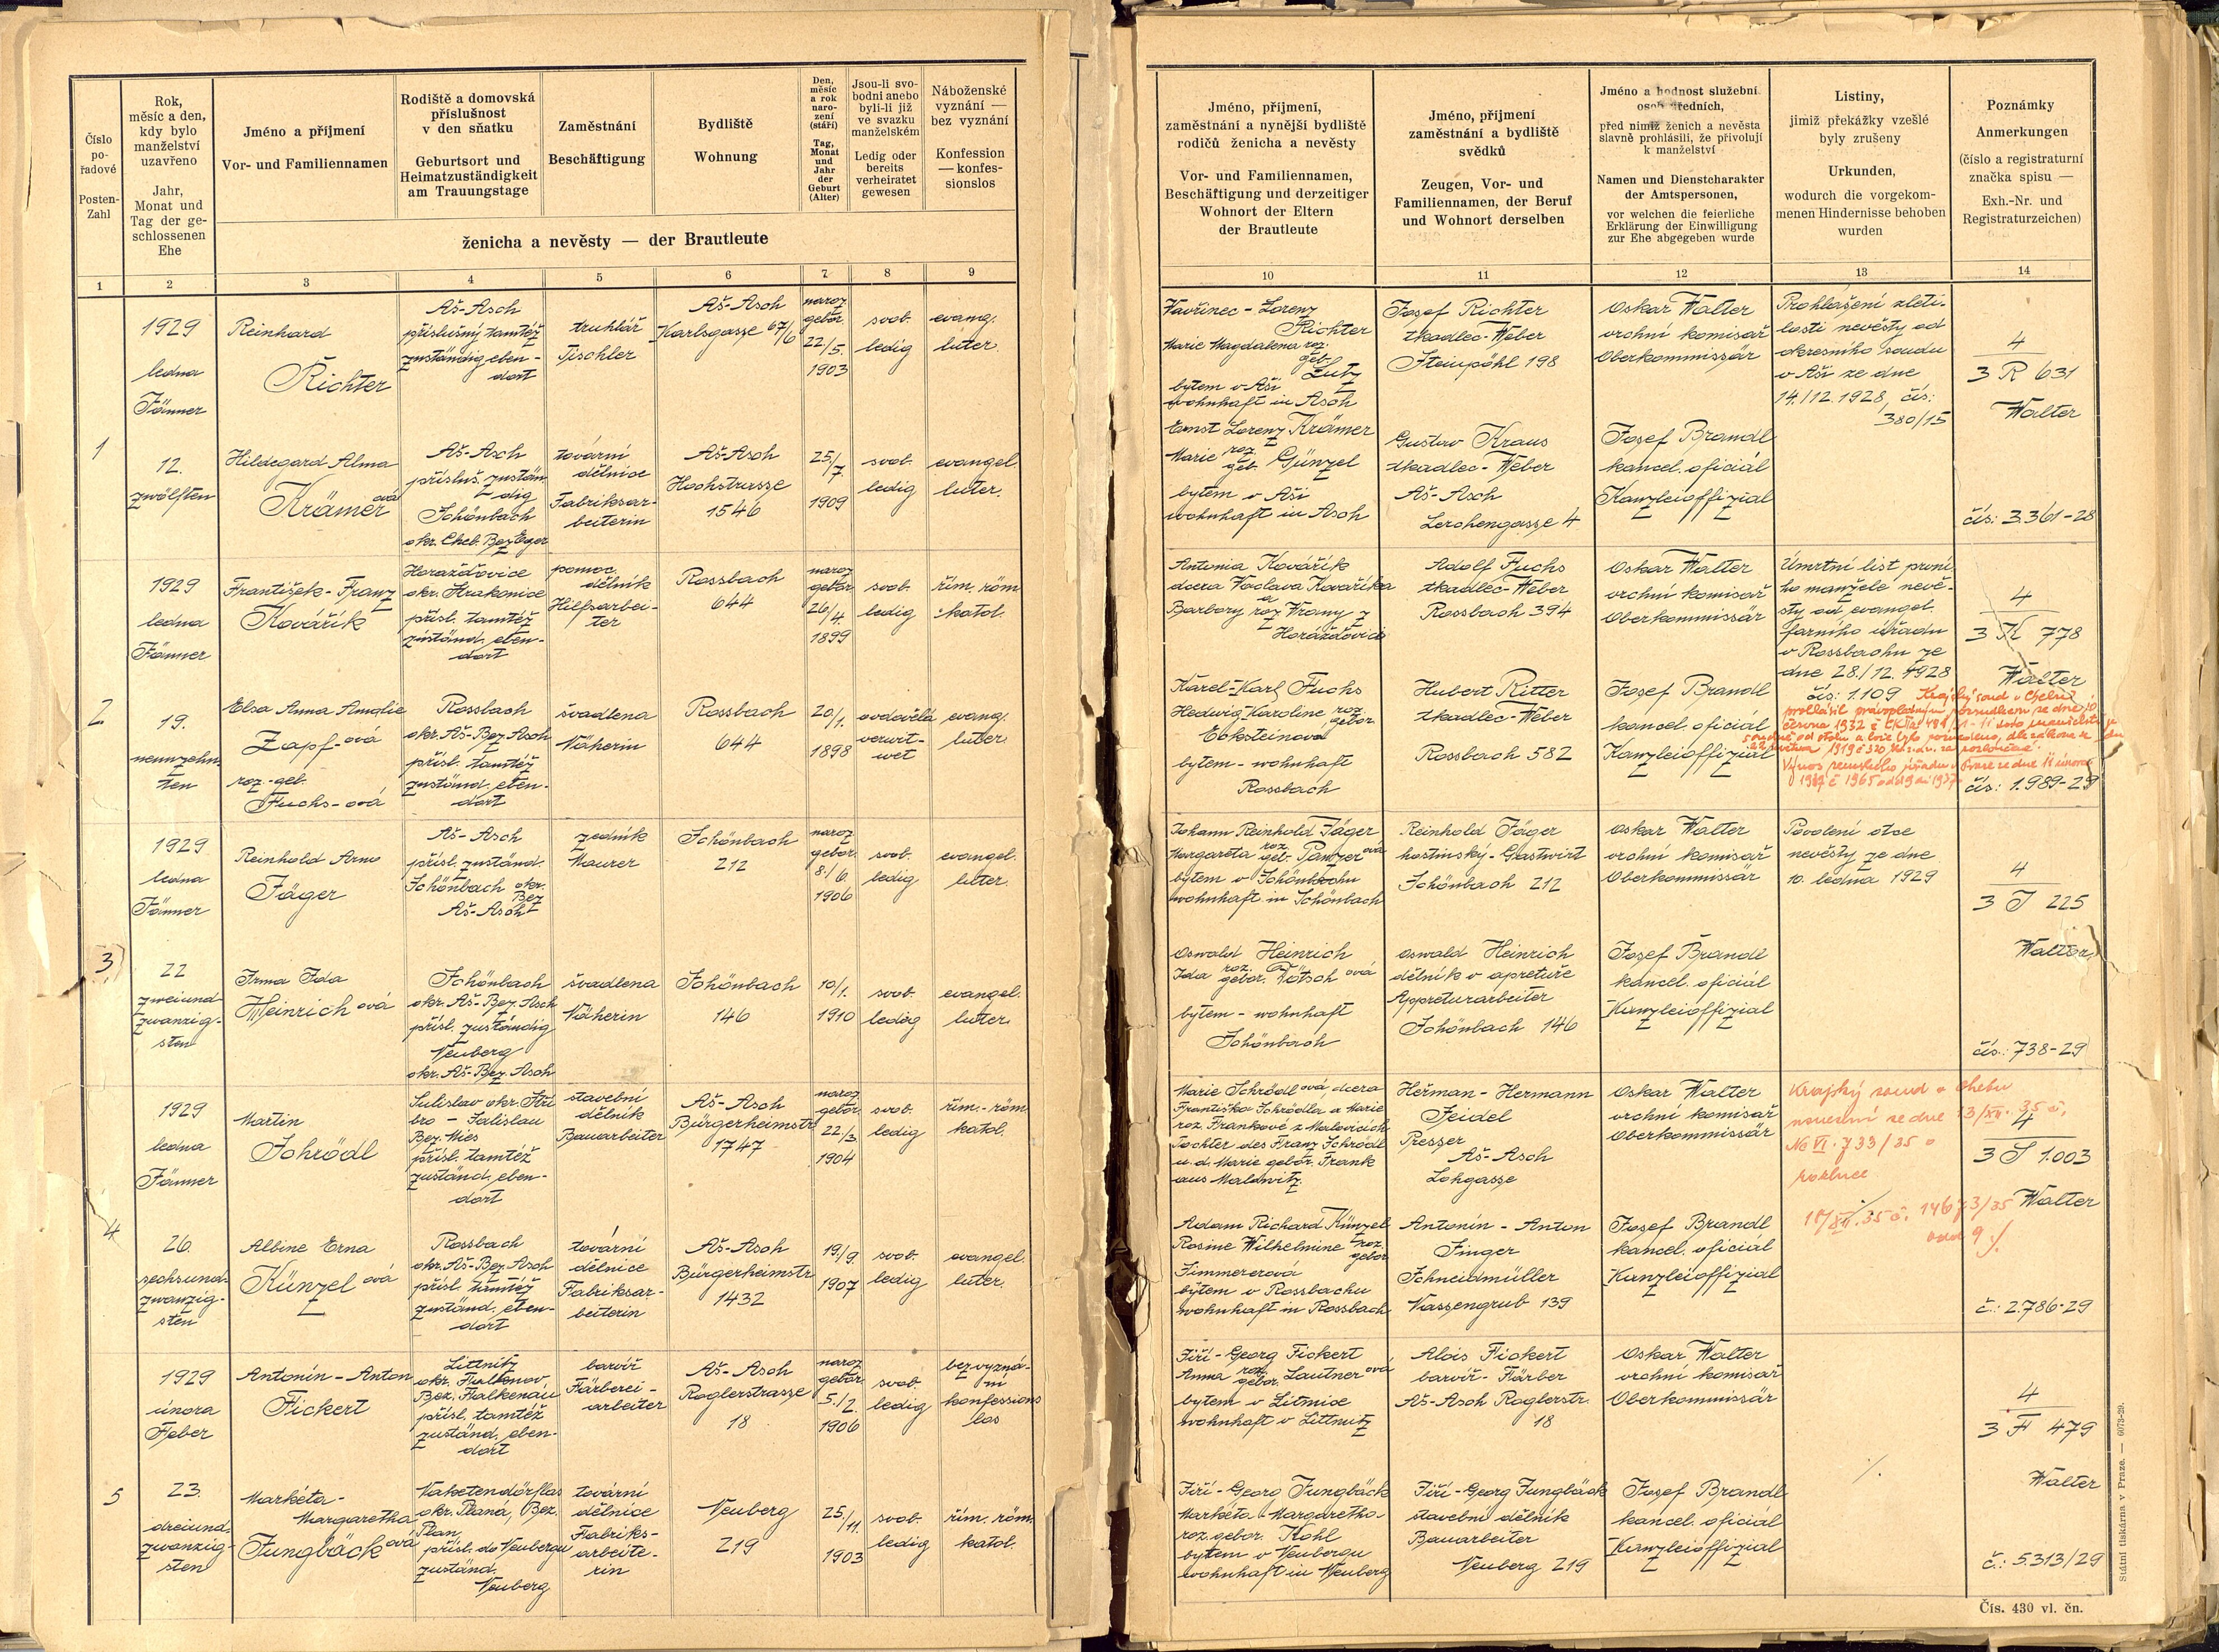 Číslo
po-
řadové
Posten-
Zahl
Rok,
měsíc a den,
kdy bylo
manželství
uzavřeno
Jahr,
Monat und
Tag der ge-
schlossenen
Ehe
Jméno a příjmení
Vor- und Familiennamen
Rodiště a domovská
příslušnost
v den sňatku
Geburtsort und
Heimatzuständigkeit
am Trauungstage
Zaměstnání
Beschäftigung
Bydliště
Wohnung
Den,
měsíc
a rok
naro-
zení
(stáří)
Tag,
Monat
und
Jahr
der
Geburt
(Alter)
Jsou-li svo-
bodni anebo
byli-li již
ve svazku
manželském
Ledig oder
bereits
verheiratet
gewesen
Náboženské
vyznání —
bez vyznání
Konfession
— konfes-
sionslos
ženicha a nevěsty — der Brautleute
1 2 3 4 5 6 7 8 9
1
1929
ledna
Jänner
12.
zwölften
Reinhard
Richter
Aš-Asch
příslušný tamtéž
zuständig eben-
dort
truhlář
Tischler
Aš-Asch
Karlsgasse 67/6
naroz
gebor.
22/5.
1903
svob.
ledig
evang.
luter.
Hildegard Alma
Krämer ová
Aš-Asch
přísluš. zustän
dig
Schönbach
okr. Cheb. Bez Eger
tovární
dělnice
Fabriksar-
beiterin
Aš-Asch
Hochstrasse
1546
25/
7.
1909
svob.
ledig
evangel.
luter.
2
1929
ledna
Jänner
19.
neunzehn-
ten
František-Franz
Kovářík
Horažďovice
okr. Strakonice
přísl. tamtéž
zuständ. eben-
dort
pomoc.
dělník
Hilfsarbei-
ter
Rossbach
644
naroz
gebor
26/4
1899
svob.
ledig
řím. röm
katol.
Elsa Anna Amalie
Zapf-ová
roz.-geb.
Fuchs-ová
Rossbach
okr. Aš-Bez Asch
přísl. tamtéž
zuständ. eben-
dort
švadlena
Näherin
Rossbach
644
20/1.
1898
ovdovělá
verwit-
wet
evang.
luter.
3
1929
ledna
Jänner
22
zweiund
zwanzig-
sten
Reinhold Arno
Jäger
Aš-Asch
přísl. zuständ.
Schönbach okr.
Bez
Aš-Asch
zedník
Maurer
Schönbach
212
naroz
gebor.
8./6.
1906
svob.
ledig
evangel.
luter.
Irma Ida
Heinrich ová
Schönbach
okr. Aš-Bez. Asch
přísl. zuständig
Neuberg
okr. Aš-Bez. Asch
švadlena
Näherin
Schönbach
146
10/1.
1910
svob.
ledig
evangel.
luter.
4
1929
ledna
Jänner
26.
sechsund-
zwanzig-
sten
Martin
Schrödl
Sulislav okr. Stří
bro - Sulislau
Bez. Mies
přísl. tamtéž
zuständ. eben-
dort
stavební
dělník
Bauarbeiter
Aš-Asch
Bürgerheimstr
1747
naroz
gebor
22/3
1904
svob.
ledig
řím.-röm.
katol.
Albine Erna
Künzel ová
Rossbach
okr. Aš-Bez Asch
přísl. tamtéž
zuständ. eben-
dort
tovární
dělnice
Fabriksar-
beiterin
Aš-Asch
Bürgerheimstr
1432
19./9.
1907
svob.
ledig
evangel.
luter.
5
1929
února
Feber
23.
dreiund-
zwanzig-
sten
Antonín-Anton
Fickert
Littnitz
okr. Falknov
Bez. Falkenau
přísl. tamtéž
zuständ. eben-
dort
barvíř
Färberei-
arbeiter
Aš-Asch
Roglerstrasse
18
naroz
gebor
5./2.
1906
svob.
ledig
bez vyzná-
ní
konfessions
los
Markéta-
Margaretha
Jungbäck ová
okr. Planá, Bez.
Plan
přísl. do Neubergu
zuständ.
Neuberg
tovární
dělnice
Fabriks-
arbeite-
rin
Neuberg
219
25./
11.
1903
svob.
ledig
řím. röm.
katol.
Jméno, příjmení,
zaměstnání a nynější bydliště
rodičů ženicha a nevěsty
Vor- und Familiennamen,
Beschäftigung und derzeitiger
Wohnort der Eltern
der Brautleute
Jméno, příjmení
zaměstnání a bydliště
svědků
Zeugen, Vor- und
Familiennamen, der Beruf
und Wohnort derselben
Jméno a hodnost služební
osob úředních,
před nimiž ženich a nevěsta
slavně prohlásili, že přivolují
k manželství
Namen und Dienstcharakter
der Amtspersonen,
vor welchen die feierliche
Erklärung der Einwilligung
zur Ehe abgegeben wurde
Listiny,
jimiž překážky vzešlé
byly zrušeny
Urkunden,
wodurch die vorgekom-
menen Hindernisse behoben
wurden
Poznámky
Anmerkungen
(číslo a registraturní
značka spisu —
Exh.-Nr. und
Registraturzeichen)
10 11 12 13 14
Vavřinec-Lorenz
Richter
Marie Magdalena roz.
geb.
Lutz
bytem v Aši
wohnhaft in Asch
Ernst Lorenz Krämer
Marie roz.
geb. Günzel
bytem v Aši
wohnhaft in Asch
Josef Richter
tkadlec-Weber
Steinpöhl 198
Gustav Kraus
tkadlec-Weber
Aš-Asch
Lerchengasse 4
Oskar Walter
vrchní komisař
Oberkommissär
Josef Brandl
kancel. oficiál
Kanzleioffizial
Prohlášení zleti-
losti nevěsty od
okresního soudu
v Aši ze dne
14./12.1928, čís:
380/15
4
3 R 631
Walter
čís: 3.361-28
Antonia Kovářík
dcera Václava Kovaříka
a
Barbory roz Vrany z
Horažďovic
Karel-Karl Fuchs
Hedwig-Karoline roz.
gebor.
Ecksteinova
bytem-wohnhaft
Rossbach
Adolf Fuchs
tkadlec-Weber
Rossbach 394
Hubert Ritter
tkadlec-Weber
Rossbach 582
Oskar Walter
vrchní komisař
Oberkommissär
Josef Brandl
kancel. oficiál
Kanzleioffizial
Úmrtní list první-
ho manžele nevě-
sty od evangel.
farního úřadu
v Rossbachu ze
dne 28./12. 1928
čís: 1.109
Krajský soud v Chebu
prohlásil pravoplatným rozsudkem ze dne
června 1932 č
4
3 K 778
Walter
čís: 1.989-29
Johann Reinhold Jäger
Margareta roz
geb. Panzer ová
bytem v Schönbachu
wohnhaft in Schönbach
Oswald Heinrich
Ida roz.
gebor. Pötsch ová
bytem-wohnhaft
Schönbach
Reinhold Jäger
hostinský-Gastwirt
Schönbach 212
Oswald Heinrich
dělník v apretuře
Appreturarbeiter
Schönbach 146
Oskar Walter
vrchní komisař
Oberkommissär
Josef Brandl
kancel. oficiál
Kanzleioffizial
Povolení otce
nevěsty ze dne
10. ledna 1929
4
3 J 225
Walter
čís.: 738-29
Marie Schrödl ová, dcera
Františka Schrödla a Marie
roz. Frankové z Malovic
Tochter des Franz Schrödl
u. d. Marie gebor. Frank
aus Malowitz
Adam Richard Künzel
Rosine Wilhelmine roz.
gebor
Simmererová
bytem v Rossbachu
wohnhaft in Rossbach
Heřman-Hermann
Seidel
Presser
Aš-Asch
Lohgasse
Antonín-Anton
Singer
Schneidmüller
Nassengrub 139
Oskar Walter
vrchní komisař
Oberkommissär
Josef Brandl
kancel. oficiál
Kanzleioffizial
Krajský soud v Chebu
ze dne 13/XII. 35 č.
VI. 733/35
4
3 S 1.003
Walter
č.: 2.786-29
Jiří-Georg Fickert
Anna roz
gebor. Lautner ová
bytem v Litnice
wohnhaft v Littnitz
Jiří-Georg Jungbäck
Markéta-Margaretha
roz. gebor. Kohl
bytem v Neubergu
wohnhaft in Neuberg
Alois Fickert
barvíř-Färber
Aš-Asch Roglerstr.
18
Jiří-Georg Jungbäck
stavební dělník
Bauarbeiter
Neuberg 219
Oskar Walter
vrchní komisař
Oberkommissär
Josef Brandl
kancel. oficiál
Kanzleioffizial
./.
4
3 F 479
Walter
č.: 5.313/29
Státní tiskárna v Praze. — 6073-29.
Čís. 430 vl. čn.